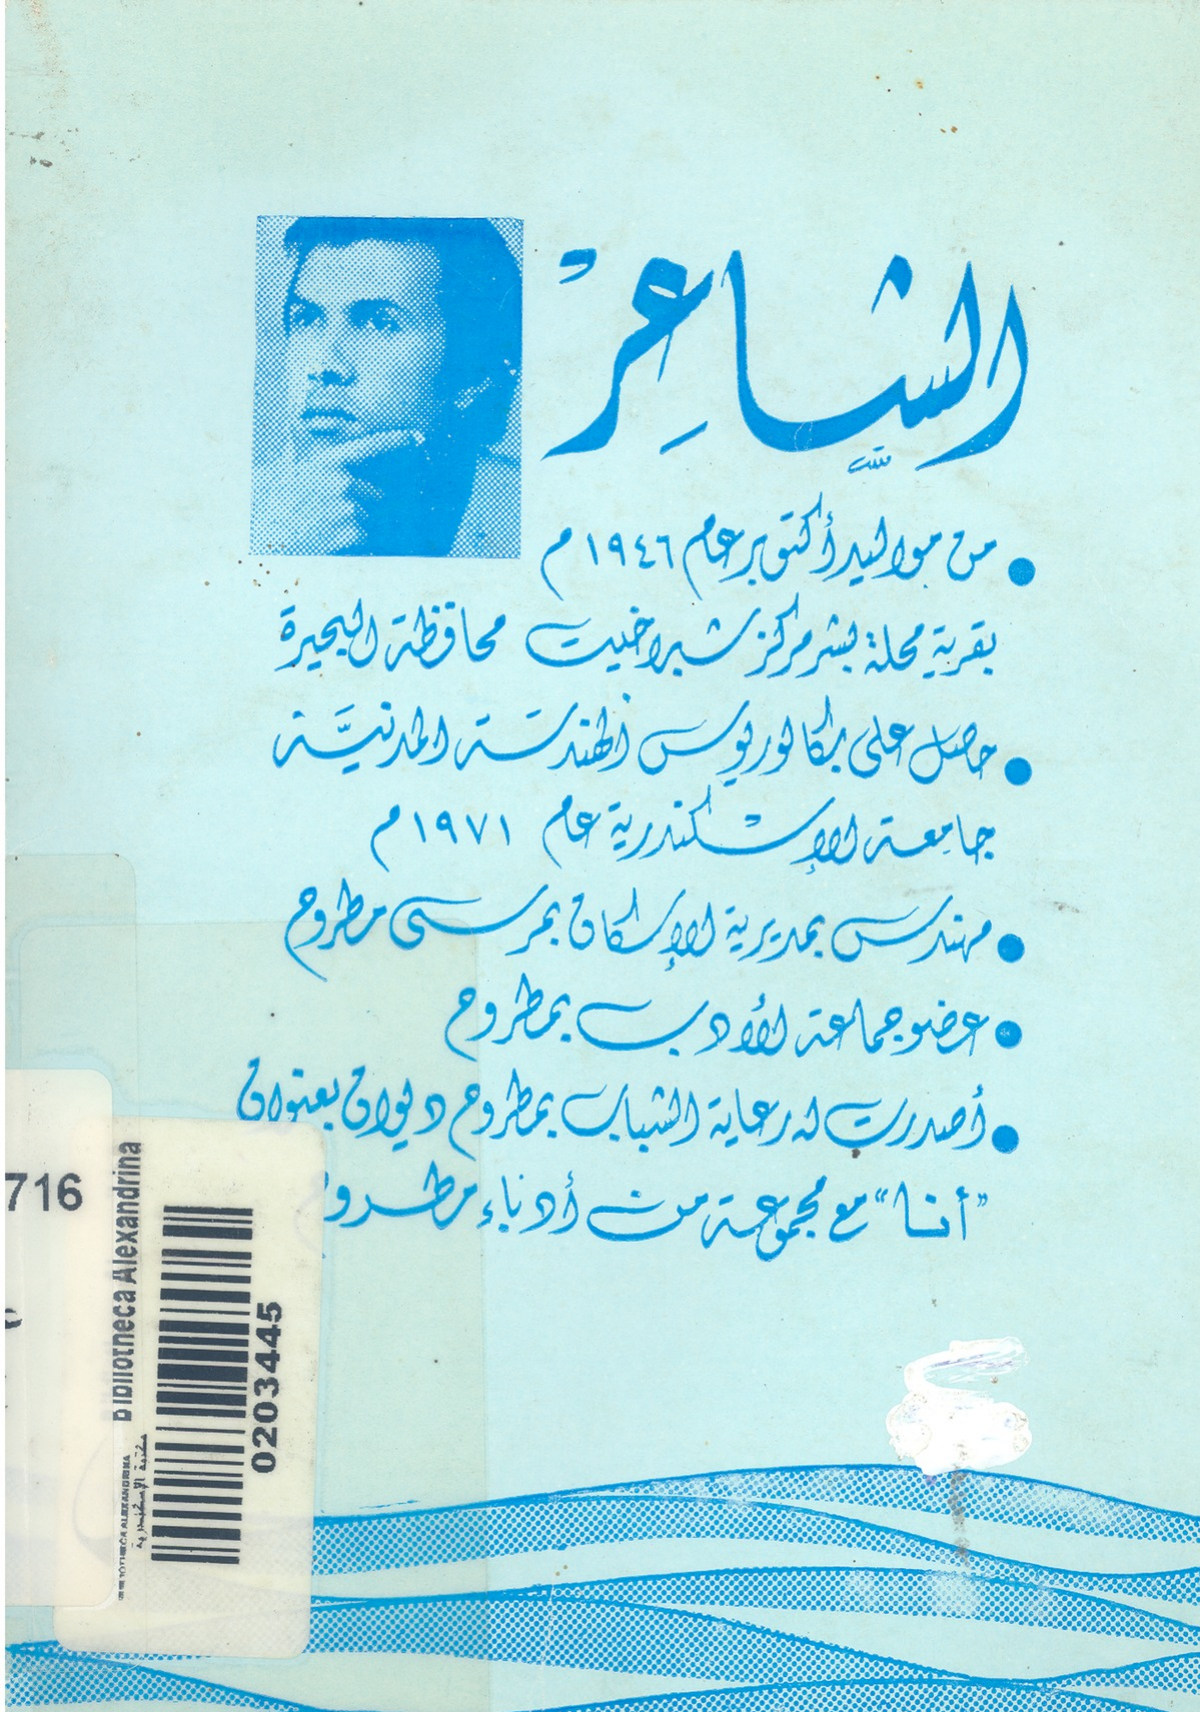 الشاعر
• من مواليد أكتوبر عام ١٩٤٦ م
بقرية محلة بشر مركز شبراخيت محافظة البحيرة
• حاصل على بكالوريوس الهندسة المدنيَّة
جامعة الإسكندرية عام ١٩٧١ م
• مهندس بمديرية الإسكان بمرسى مطروح
• عضو جماعة الأدب بمطروح
• أصدرت له رعاية الشباب بمطروح ديوان بعنوان
"أنا" مع مجموعة من أدباء مطروح
716
Bibliotheca Alexandrina
0203445
BIBLIOTHECA ALEXANDRINA
مكتبة الإسكندرية